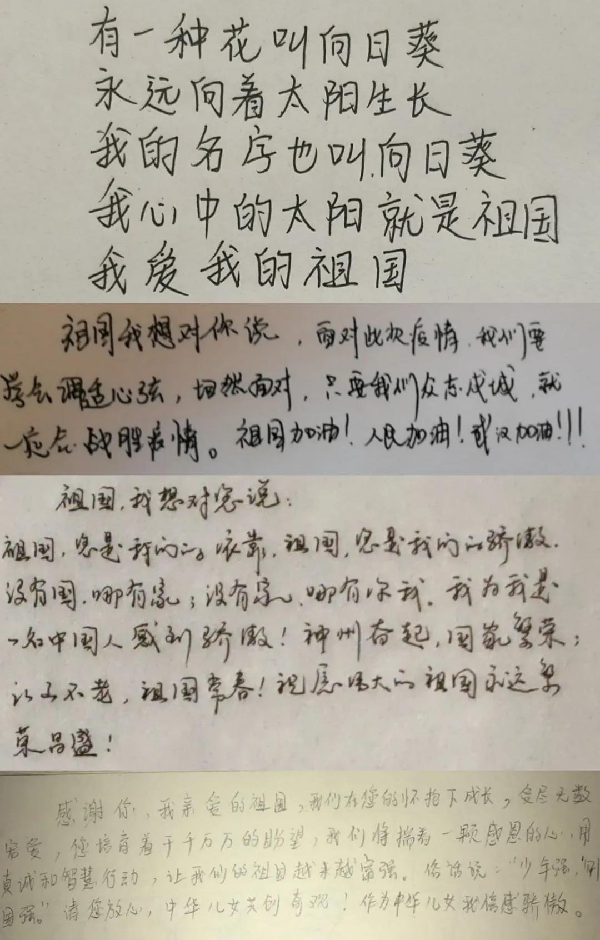 有一种花叫向日葵
永远向着太阳生长
我的名字也叫向日葵
我心中的太阳就是祖国
我爱我的祖国
祖国我想对你说，面对此次疫情，我们要
学会调适心弦，坦然面对，只要我们众志成城，就
一定会战胜疫情。祖国加油！人民加油！武汉加油!!!
祖国，我想对您说：
祖国，您是我们的依靠，祖国，您是我们的骄傲．
没有国，哪有家；没有家，哪有你我．我为我是
一名中国人感到骄傲！神州奋起，国家繁荣；
江山不老，祖国常春！祝愿伟大的祖国永远繁
荣昌盛！
感谢你，我亲爱的祖国，我们在您的怀抱下成长，受尽无数
宠爱，您培育着千千万万的盼望，我们将揣着一颗感恩的心，用
真诚和智慧行动，让我们的祖国越来越富强。俗话说：“少年强，则
国强。”请您放心，中华儿女共创奇观！作为中华儿女我倍感骄傲。